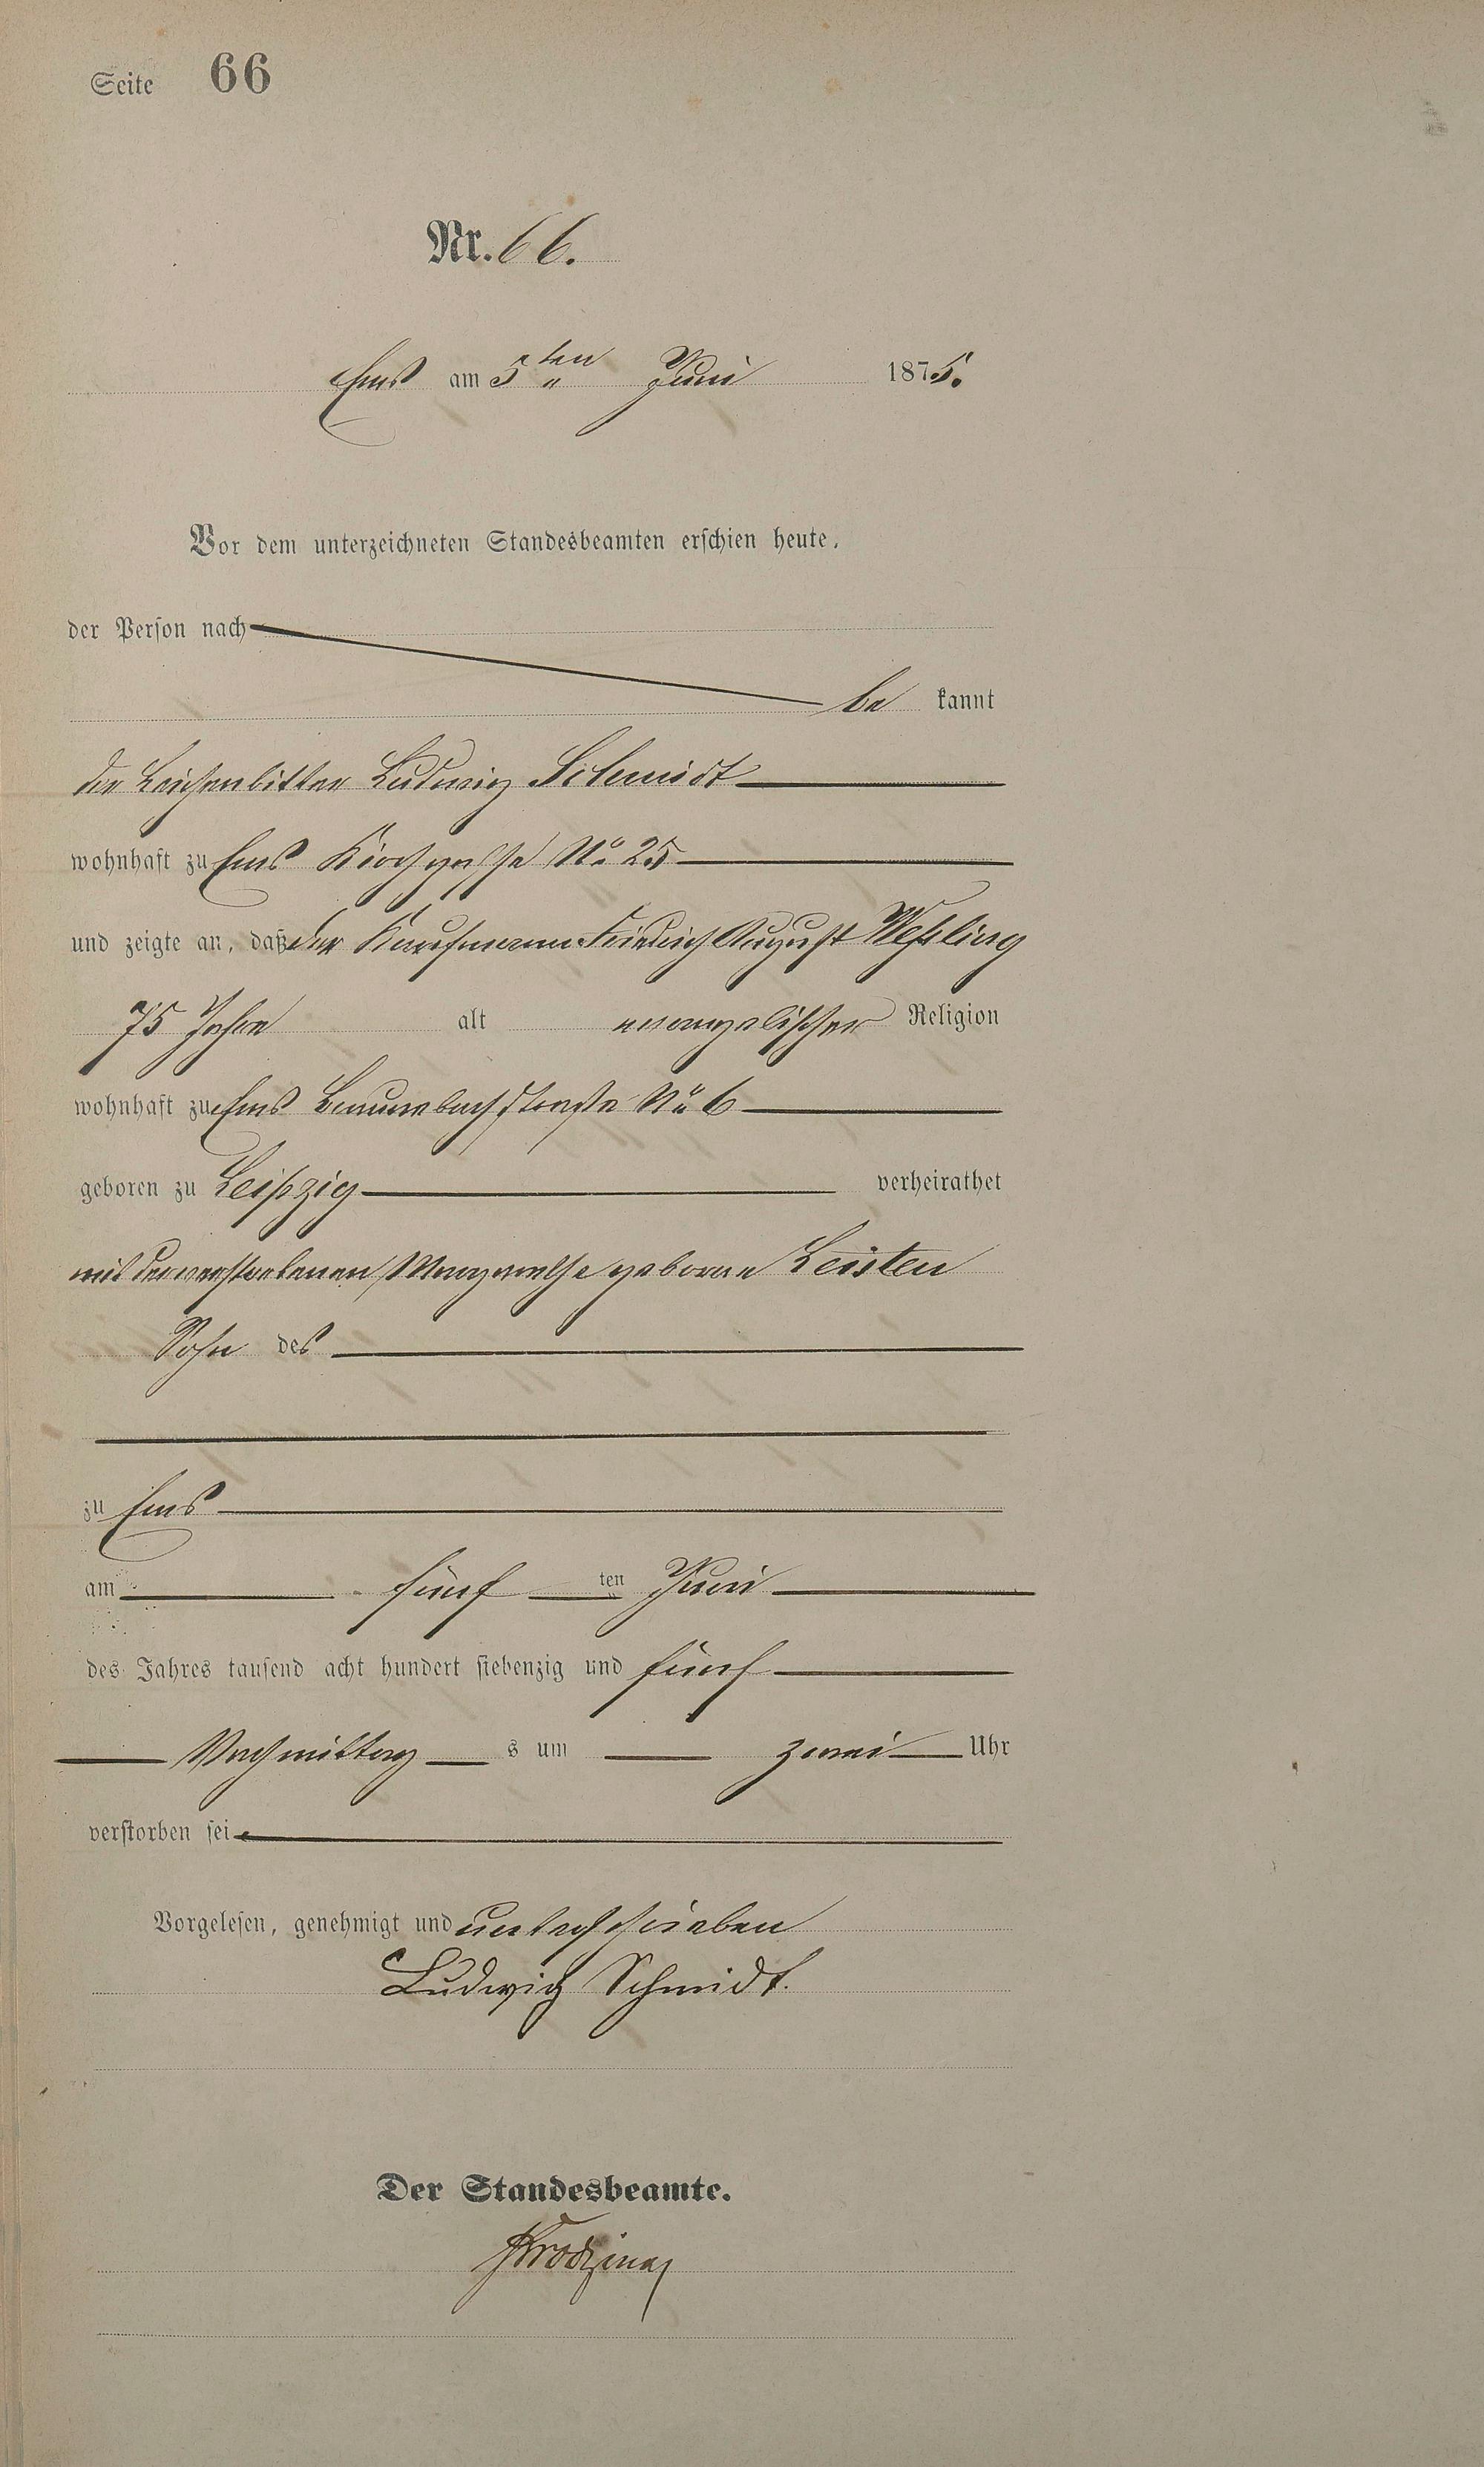 Seite 66
Nr. 66.
Ems am 5ten Juni 1875.
Vor dem unterzeichneten Standesbeamten erschien heute,
der Person nach
be kannt
der Leichenbitter Ludwig Schmidt
wohnhaft zu Ems Kirchgasse No 25
und zeigte an, daß der Kaufmann Friedrich August
75 Jahre alt evangelischer Religion
wohnhaft zu Ems No 6
geboren zu Leipzig verheirathet
mit der verstorbenen Margarethe geborne Leisten
Sohn des
zu Ems
am fünf ten Juni
des Jahres tausend acht hundert siebenzig und fünf
Nachmittag s um zwei Uhr
verstorben sei
Vorgelesen, genehmigt und unterschrieben
Ludwig Schmidt.
Der Standesbeamte.